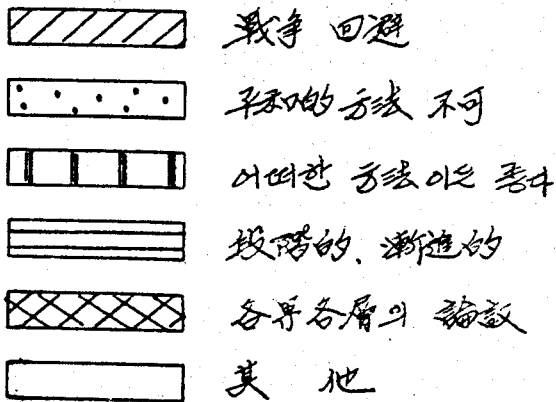 戰争 回避
平和的 方法 不可
어떠한 方法이든 좋다
段階的, 漸進的
各界各層의 論議
其 他